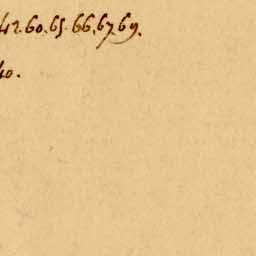 42.60.65.66.67.69.
40.